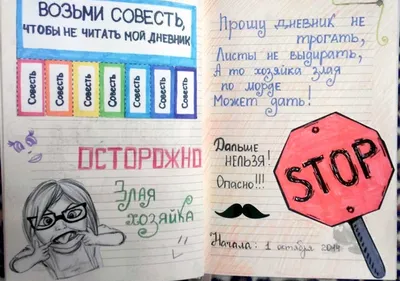 ВОЗЬМИ СОВЕСТЬ,
ЧТОБЫ НЕ ЧИТАТЬ МОЙ ДНЕВНИК
Совесть Совесть Совесть Совесть Совесть Совесть Совесть
ОСТОРОЖНО
Злая
хозяйка
Прошу дневник не
трогать,
Листы не выдирать,
А то хозяйка злая
по морде
Может дать!
Дальше
нельзя!
Опасно!!!
STOP
Начала: 1 октября 2014